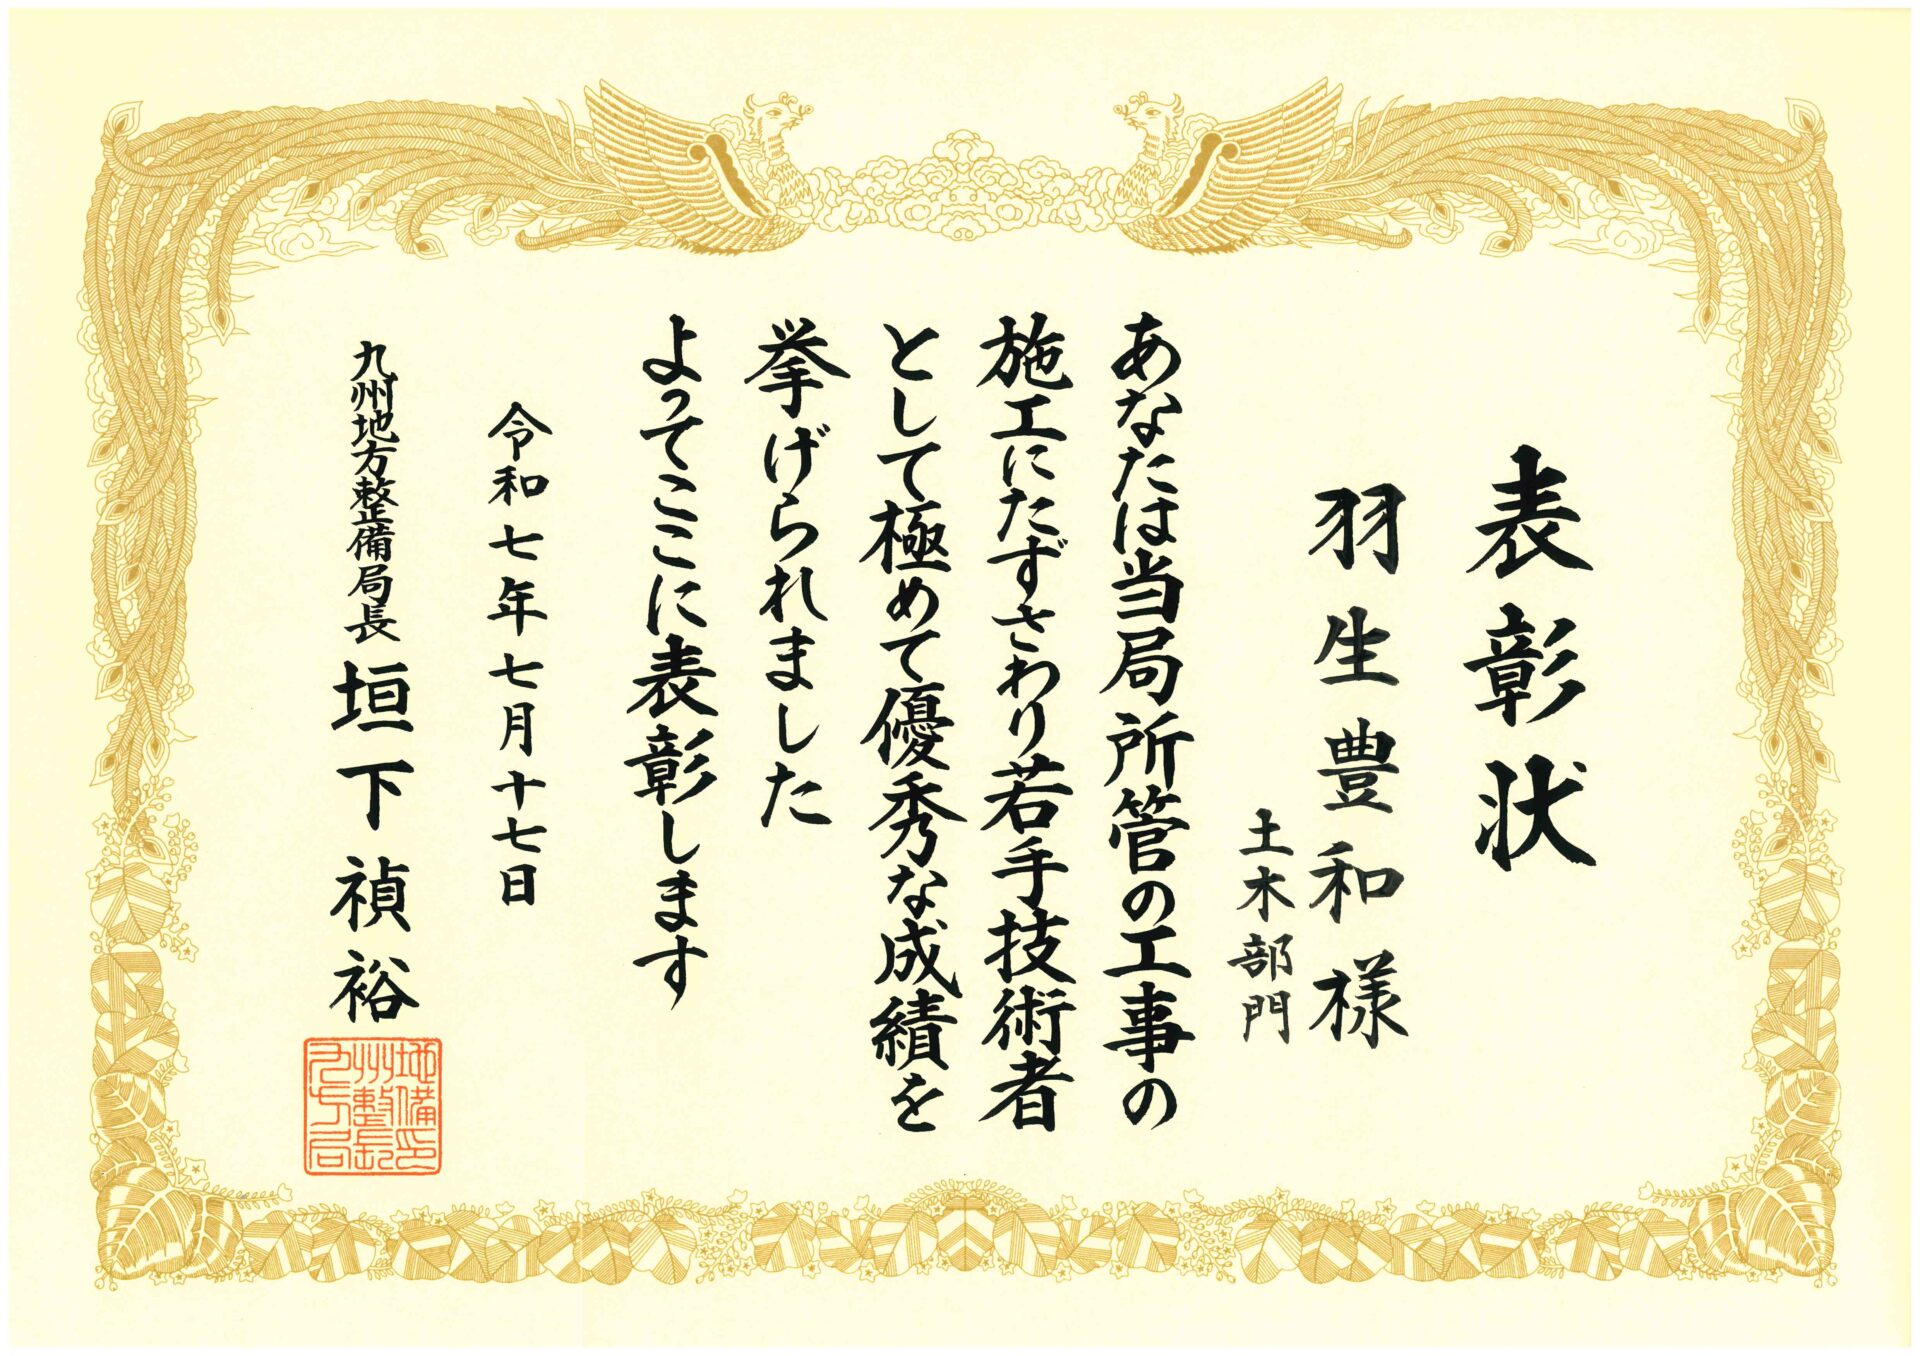 表彰状
羽生豊和様
土木部門
あなたは当局所管の工事の
施工にたずさわり若手技術者
として極めて優秀な成績を
挙げられました
よってここに表彰します
令和七年七月十七日
九州地方整備局長 垣下禎裕
地備印
州整長
九方局